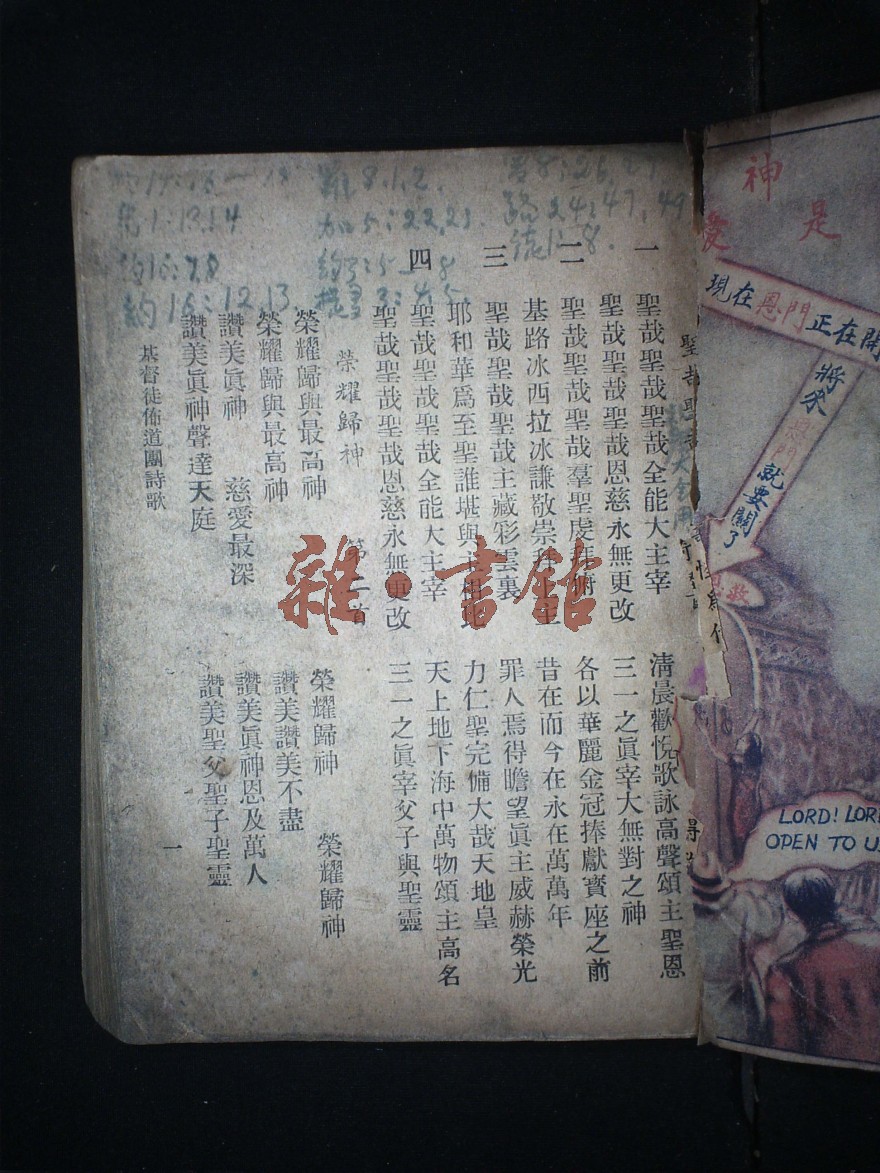 神
愛
是
現在恩門正在開
將來恩門就要關了
LORD! LORD
OPEN TO US
一
聖哉聖哉聖哉全能大主宰
清晨歡悅歌詠高聲頌主聖恩
聖哉聖哉聖哉恩慈永無更改
三一之眞宰大無對之神
二
聖哉聖哉聖哉羣聖虔拜俯
各以華麗金冠捧獻寶座之前
基路冰西拉冰謙敬崇拜主
昔在而今在永在萬萬年
三
聖哉聖哉聖哉主藏彩雲裏
罪人焉得瞻望眞主威赫榮光
耶和華爲至聖誰堪與主相比
力仁聖完備大哉天地皇
四
聖哉聖哉聖哉全能大主宰
天上地下海中萬物頌主高名
聖哉聖哉聖哉恩慈永無更改
三一之眞宰父子與聖靈
榮耀歸神 第二首
榮耀歸與最高神 榮耀歸神 榮耀歸神
榮耀歸與最高神 讚美讚美不盡
讚美眞神 慈愛最深 讚美眞神恩及萬人
讚美眞神聲達天庭 讚美聖父聖子聖靈
基督徒佈道團詩歌 一
8:26
路24:47,49
徒1:8
羅8.1,2.
加5:22,23
3:5-8
3:4-5
1:13.14
約16:7.8
約15:12.13
雜·書館